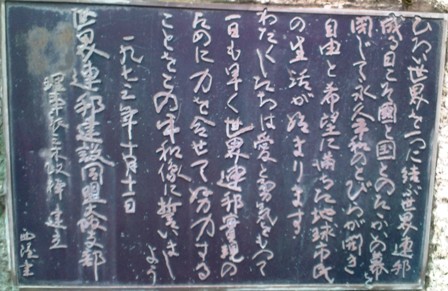 ひろい世界を一つに結ぶ世界連邦
成る日こそ國と国とのたたかの幕を
閉じて永久平和のとびらが開き
自由と希望に満ちた地球市民
の生活が始まります
わたくしたちは愛と勇気をもって
一日も早く世界連邦実現の
ために力を合せて努力する
ことをこの平和像に誓いましょう
一九七三年十月十一日
世界連邦建設同盟 支部
建立